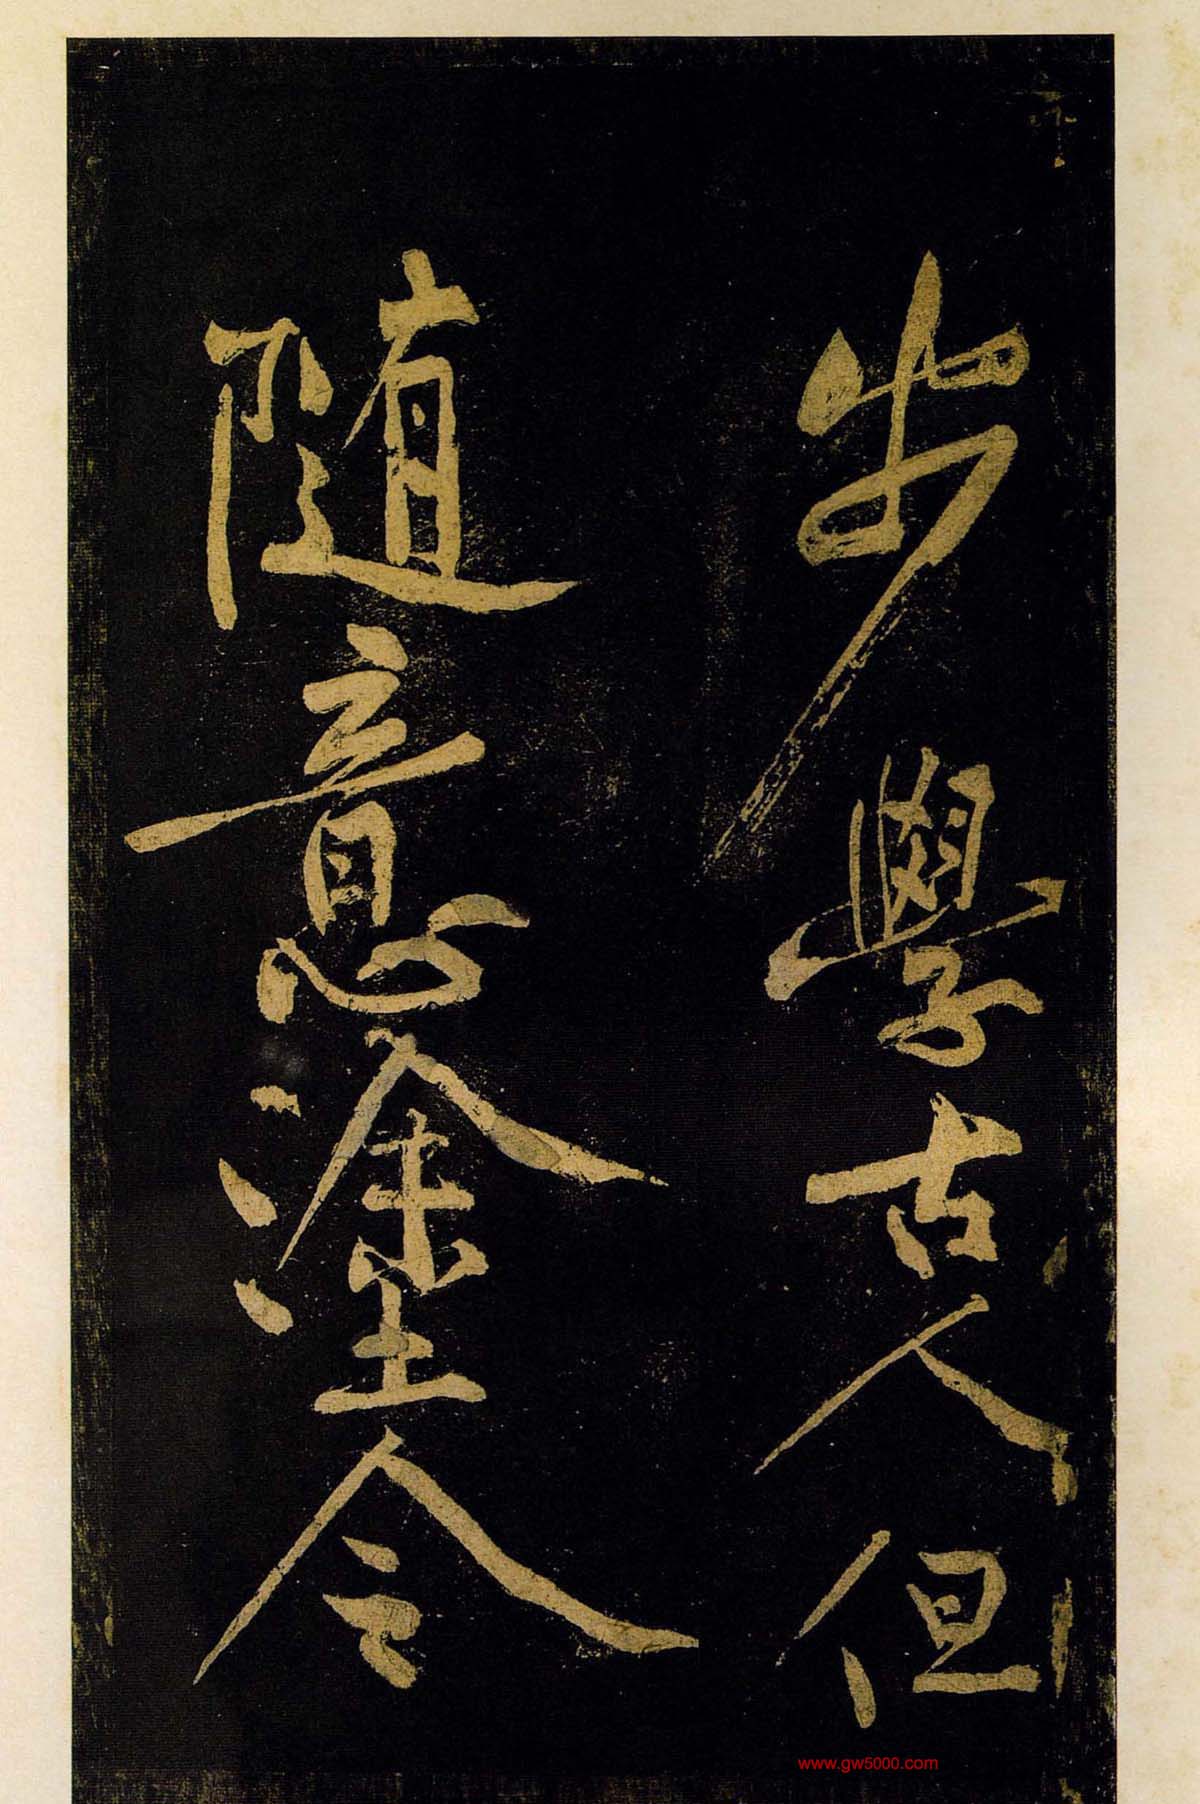 步學古人但
随意塗今
www.gw5000.com